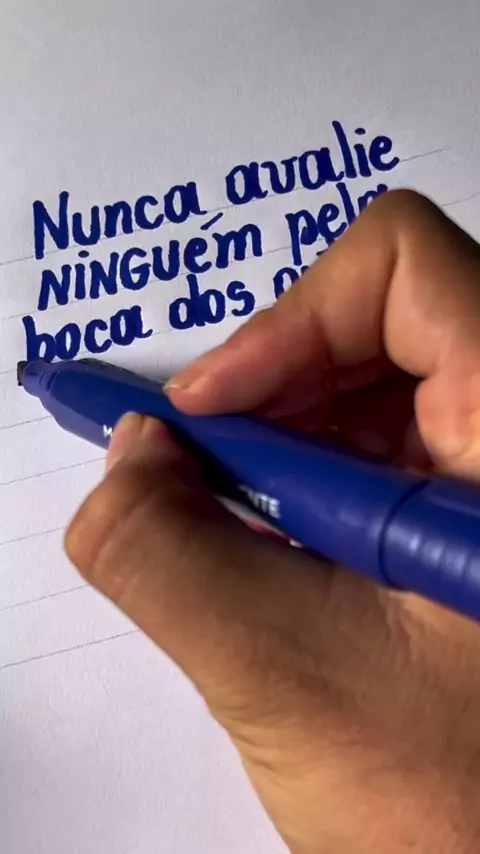 Nunca avalie
NINGUÉM pela
boca dos